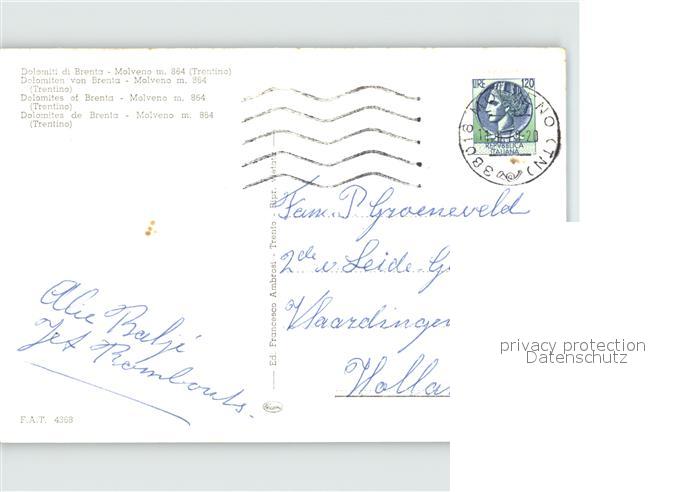 Dolomiti di Brenta - Molveno m. 864 (Trentino)
Dolomiten von Brenta - Molveno m. 864
(Trentino)
Dolomites of Brenta - Molveno m. 864
(Trentino)
Dolomites de Brenta - Molveno m. 864
(Trentino)
LIRE 120
REPVBBLICA
ITALIANA
38018 NO (TN)
Fam. P Groeneveld
2de v. Leide G
Vlaardingen
Holla
Ed. Francesco Ambrosi - Trento - Ripr. vietata
Alie
Jet Rombouts.
F.A.T. 4368
privacy protection
Datenschutz